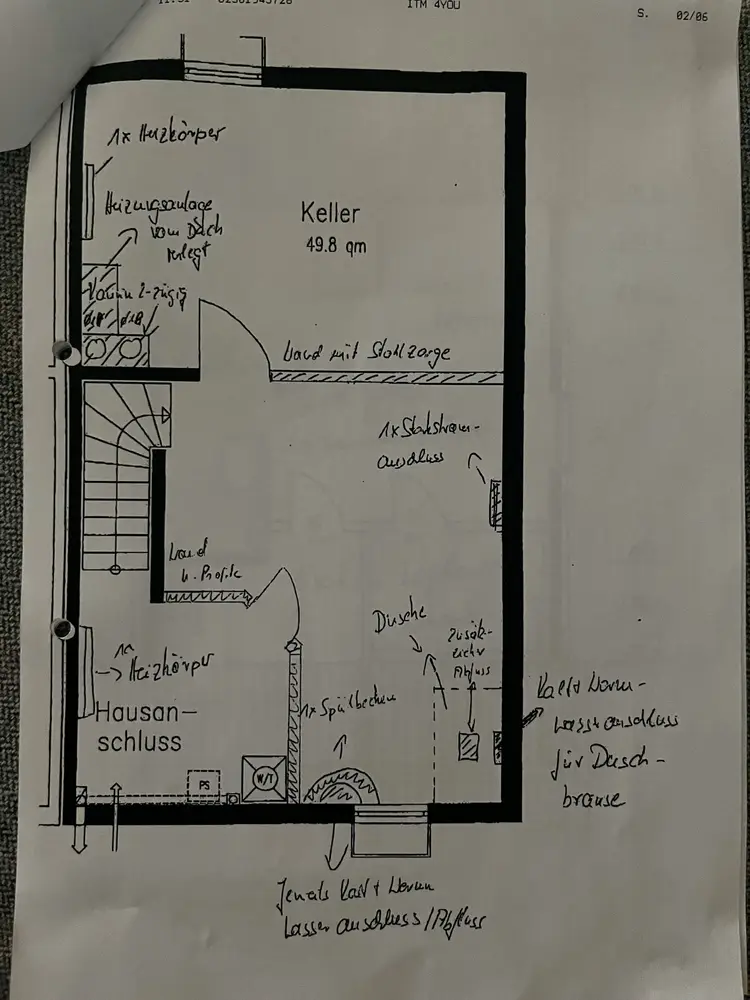 ITM 4YOU
S. 02/06
1x Heizkörper
Heizungsanlage
vom Dach
verlegt
Kamin 2-zügig
Keller
49.8 qm
Wand mit Stahlzarge
1x Starkstrom-
anschluss
Wand
u. Profile
Dusche
Zusätz-
licher
Abfluss
Heizkörper
1x Spülbecken
Hausan-
schluss
PS
W/T
Kalt + Warm-
wasseranschluss
für Dusch-
brause
Jeweils Kalt + Warm
Wasser anschluss/Abfluss